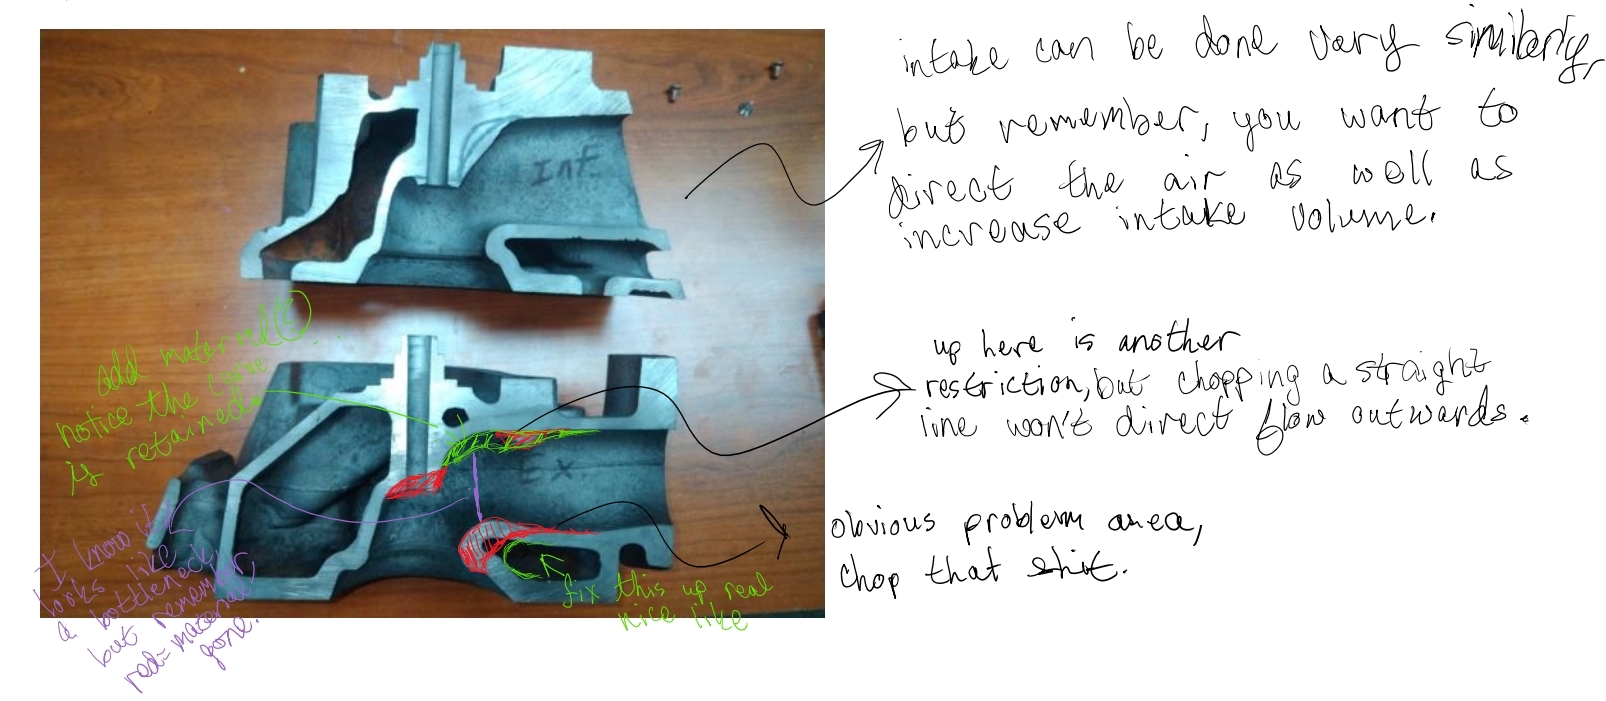 intake can be done very similarly,
but remember, you want to
direct the air as well as
increase intake volume.
Int
add material(!)
notice the curve ...
is retained.
up here is another
restriction, but chopping a straight
line won't direct flow outwards.
EX
I know it
looks like
a bottleneck
but remember,
red = material
gone.
obvious problem area,
chop that shit.
fix this up real
nice like